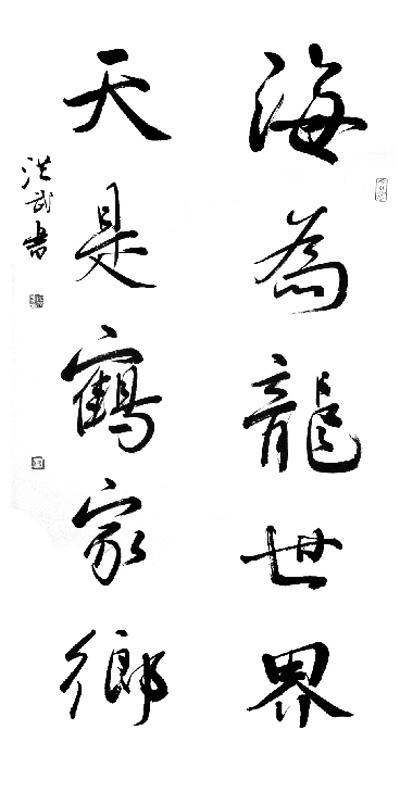 海為龍世界
天是鶴家鄉
洪武書